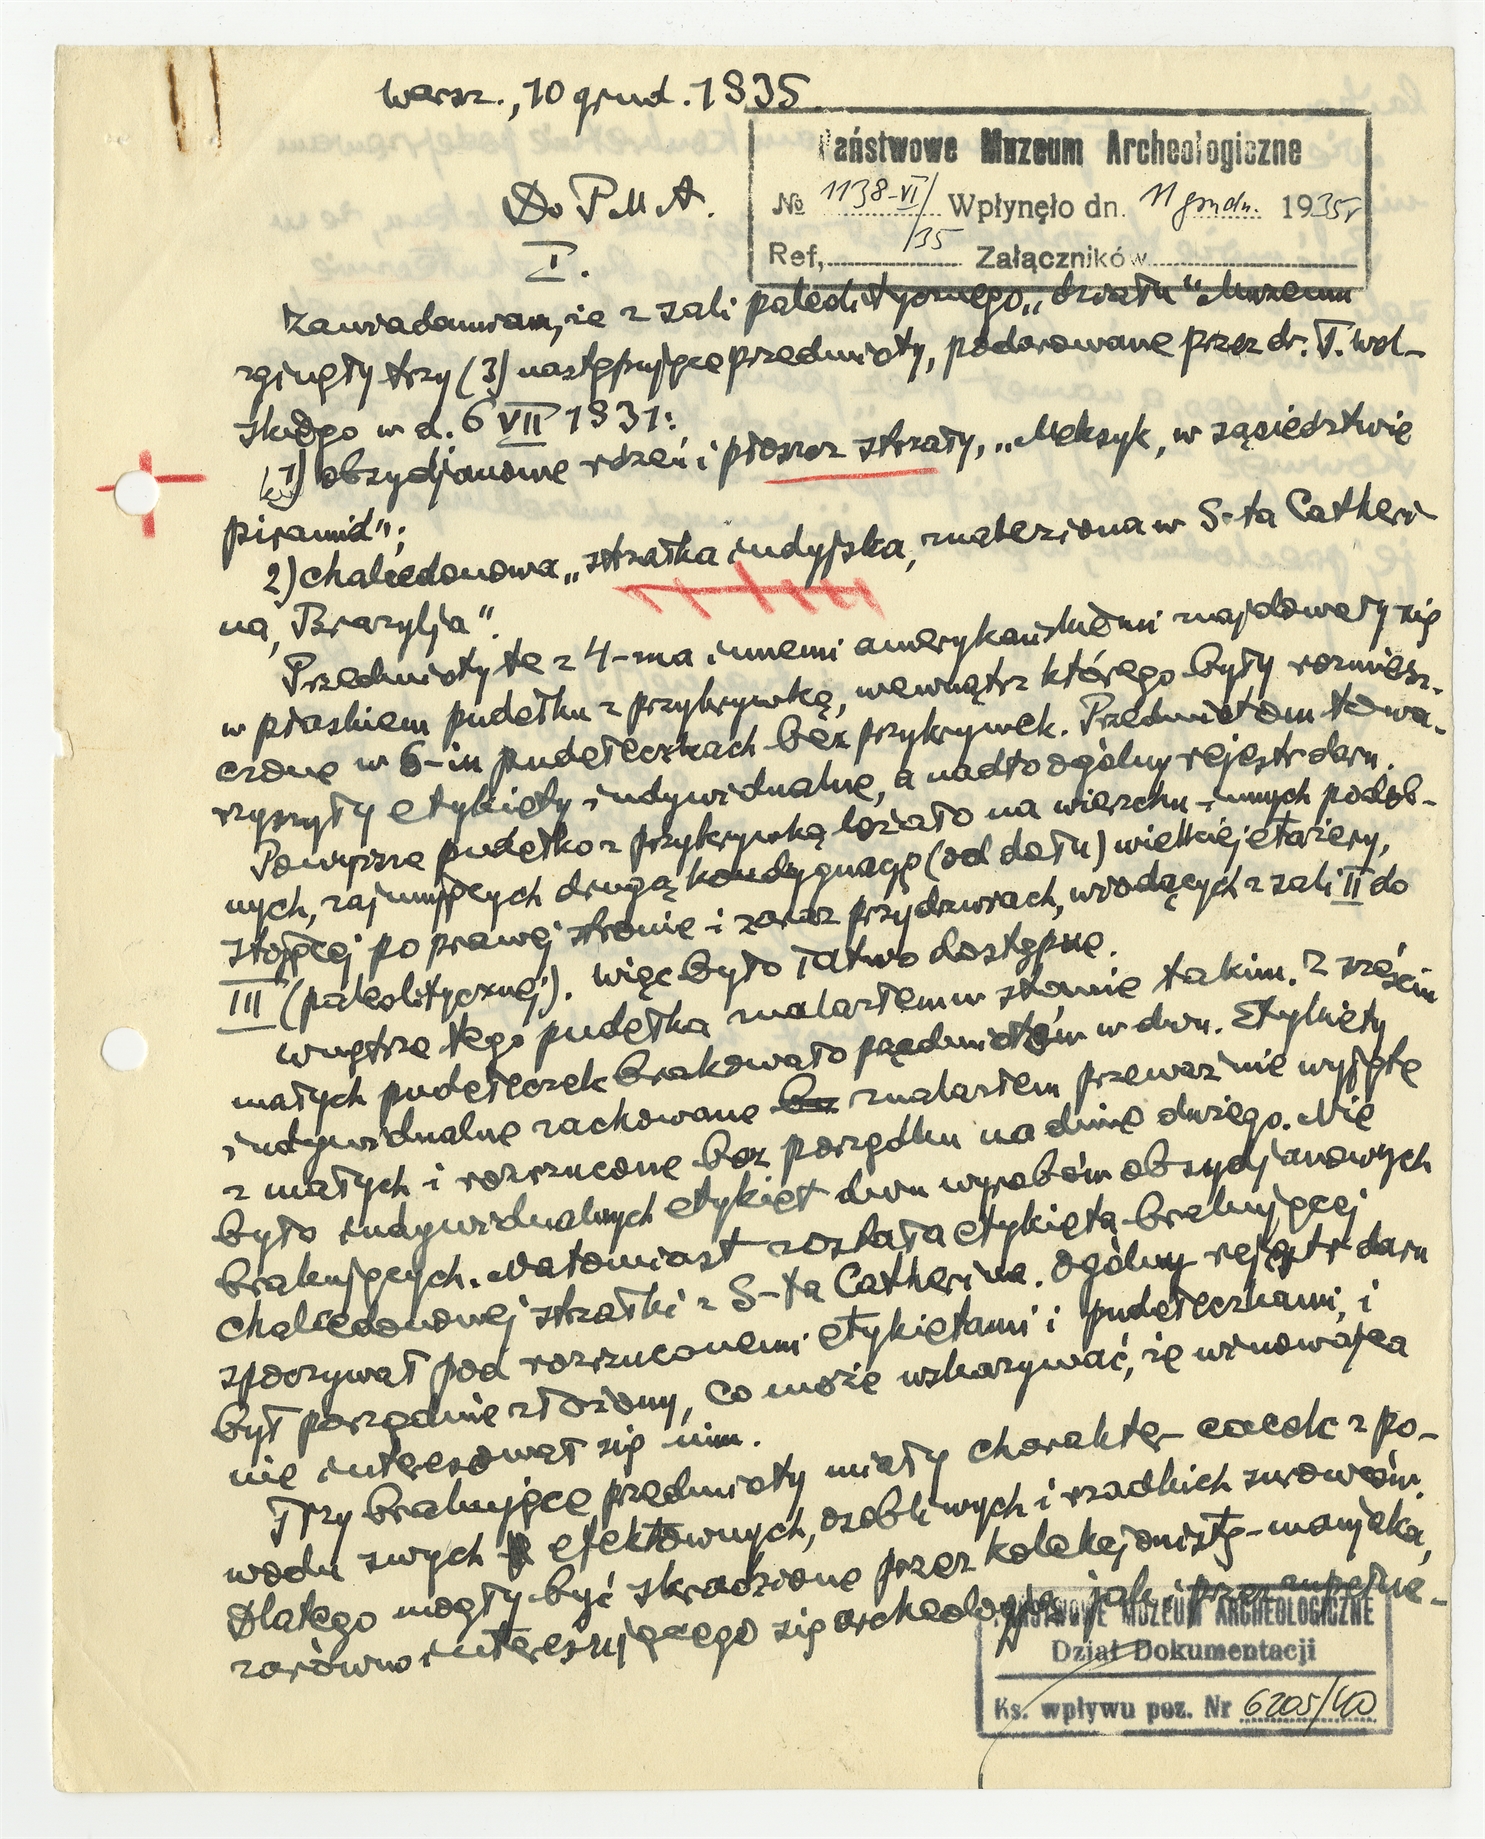 Warsz., 10 grud. 1935.
Państwowe Muzeum Archeologiczne
№ 1138-VI/35 Wpłynęło dn. 11 grudn. 1935 r
Ref, Załączników
Do P M A.
I.
Zawiadamiam, że z sali paleolitycznego „działu" Muzeum
zginęły trzy (3) następujące przedmioty, podarowane przez dr. T. Wol-
skiego w d. 6 VII 1931:
1) obsydjanowe rdzeń i płoszcz strzały, „Meksyk, w sąsiedztwie
piramid";
2) chalcedonowa „strzałka indyjska, znaleziona w S-ta Catheri-
na, Brazylja".
Przedmioty te z 4-ma innemi amerykańskiemi znajdowały się
w płaskiem pudełku z przykrywką, wewnątrz którego były rozmiesz-
czone w 6-iu pudełeczkach bez przykrywek. Przedmiotom towa-
rzyszyły etykiety indywidualne, a nadto ogólny rejestr daru.
Powyższe pudełko z przykrywką leżało na wierzchu innych podob-
nych, zajmujących drugą kondygnację (od dołu) wielkiej etażery,
stojącej po prawej stronie i zaraz przy drzwiach, wiodących z sali II do
III (paleolitycznej). Więc było łatwo dostępne.
Wnętrze tego pudełka znalazłem w stanie takim. Z sześciu
małych pudełeczek brakowało przedmiotów w dwu. Etykiety
indywidualne zachowane znalazłem przeważnie wyjęte
z małych i rozrzucone bez porządku na dnie dużego. Nie
było indywidualnych etykiet dwu wyrobów obsydjanowych
brakujących. Natomiast została etykieta brakującej
chalcedonowej strzałki z S-ta Catherina. Ogólny rejestr daru
spoczywał pod rozrzuconemi etykietami i pudełeczkami, i
był porządnie złożony, co może wskazywać, że winowajca
nie interesował się nim.
Trzy brakujące przedmioty miały charakter cacek z po-
wodu swych efektownych, osobliwych i rzadkich surowców.
Dlatego mogły być skradzione przez kolekcjonistę-manjaka,
zarówno interesującego się archeologją, jak i przez zupełne-
PAŃSTWOWE MUZEUM ARCHEOLOGICZNE
Dział Dokumentacji
Ks. wpływu poz. Nr 6205/40